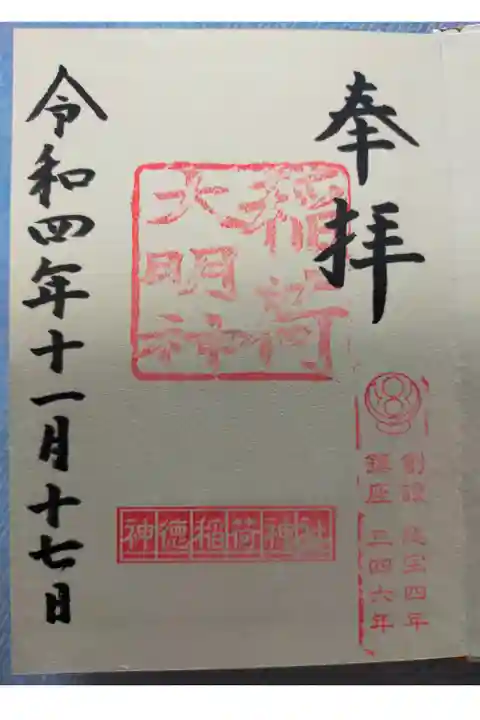 奉拝
創設 延宝四年
鎮座 三四六年
稲荷
大明神
神徳稲荷神社
令和四年十一月十七日